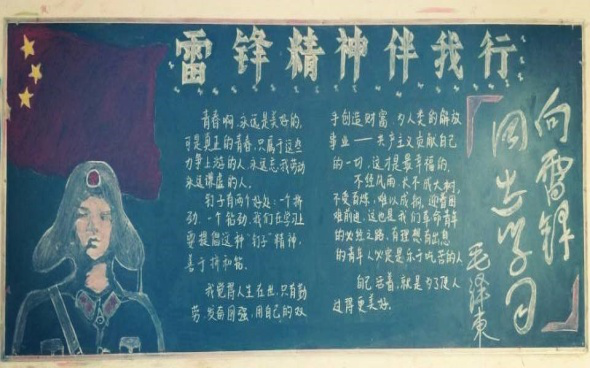 雷锋精神伴我行
青春啊,永远是美好的,
可是真正的青春,只属于这些
力争上游的人,永远忘我劳动
永远谦虚的人。
钉子有两个好处:一个挤
劲,一个钻劲,我们在学习上
要提倡这种"钉子"精神,
善于挤和钻。
我觉得人生在世,只有勤
劳,发奋图强,用自己的双
手创造财富,为人类的解放
事业——共产主义贡献自己
的一切,这才是最幸福的。
不经风雨,长不成大树,
不受百炼,难以成钢。迎着困
难前进,这也是我们革命青年
的必经之路,有理想有出息
的青年人必定是乐于吃苦的人
自己活着,就是为了使人
过得更美好。
向雷锋
同志学习
毛泽東